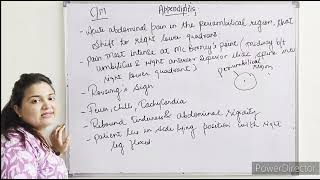 C/M
Appendicitis
- Acute abdominal pain in the periumbilical region, that
shift to right lower quadrant.
- Pain most intense at Mc Borney's point (midway b/t
umbilicus & right anterior superior iliac spine into
right lower quadrant)
periumbilical
region
- Rovsing's sign
- Fever, chills, Tachycardia
- Rebound Tenderness & abdominal rigidity
- Patient lies in side lying position with right
leg flexed
PowerDirector